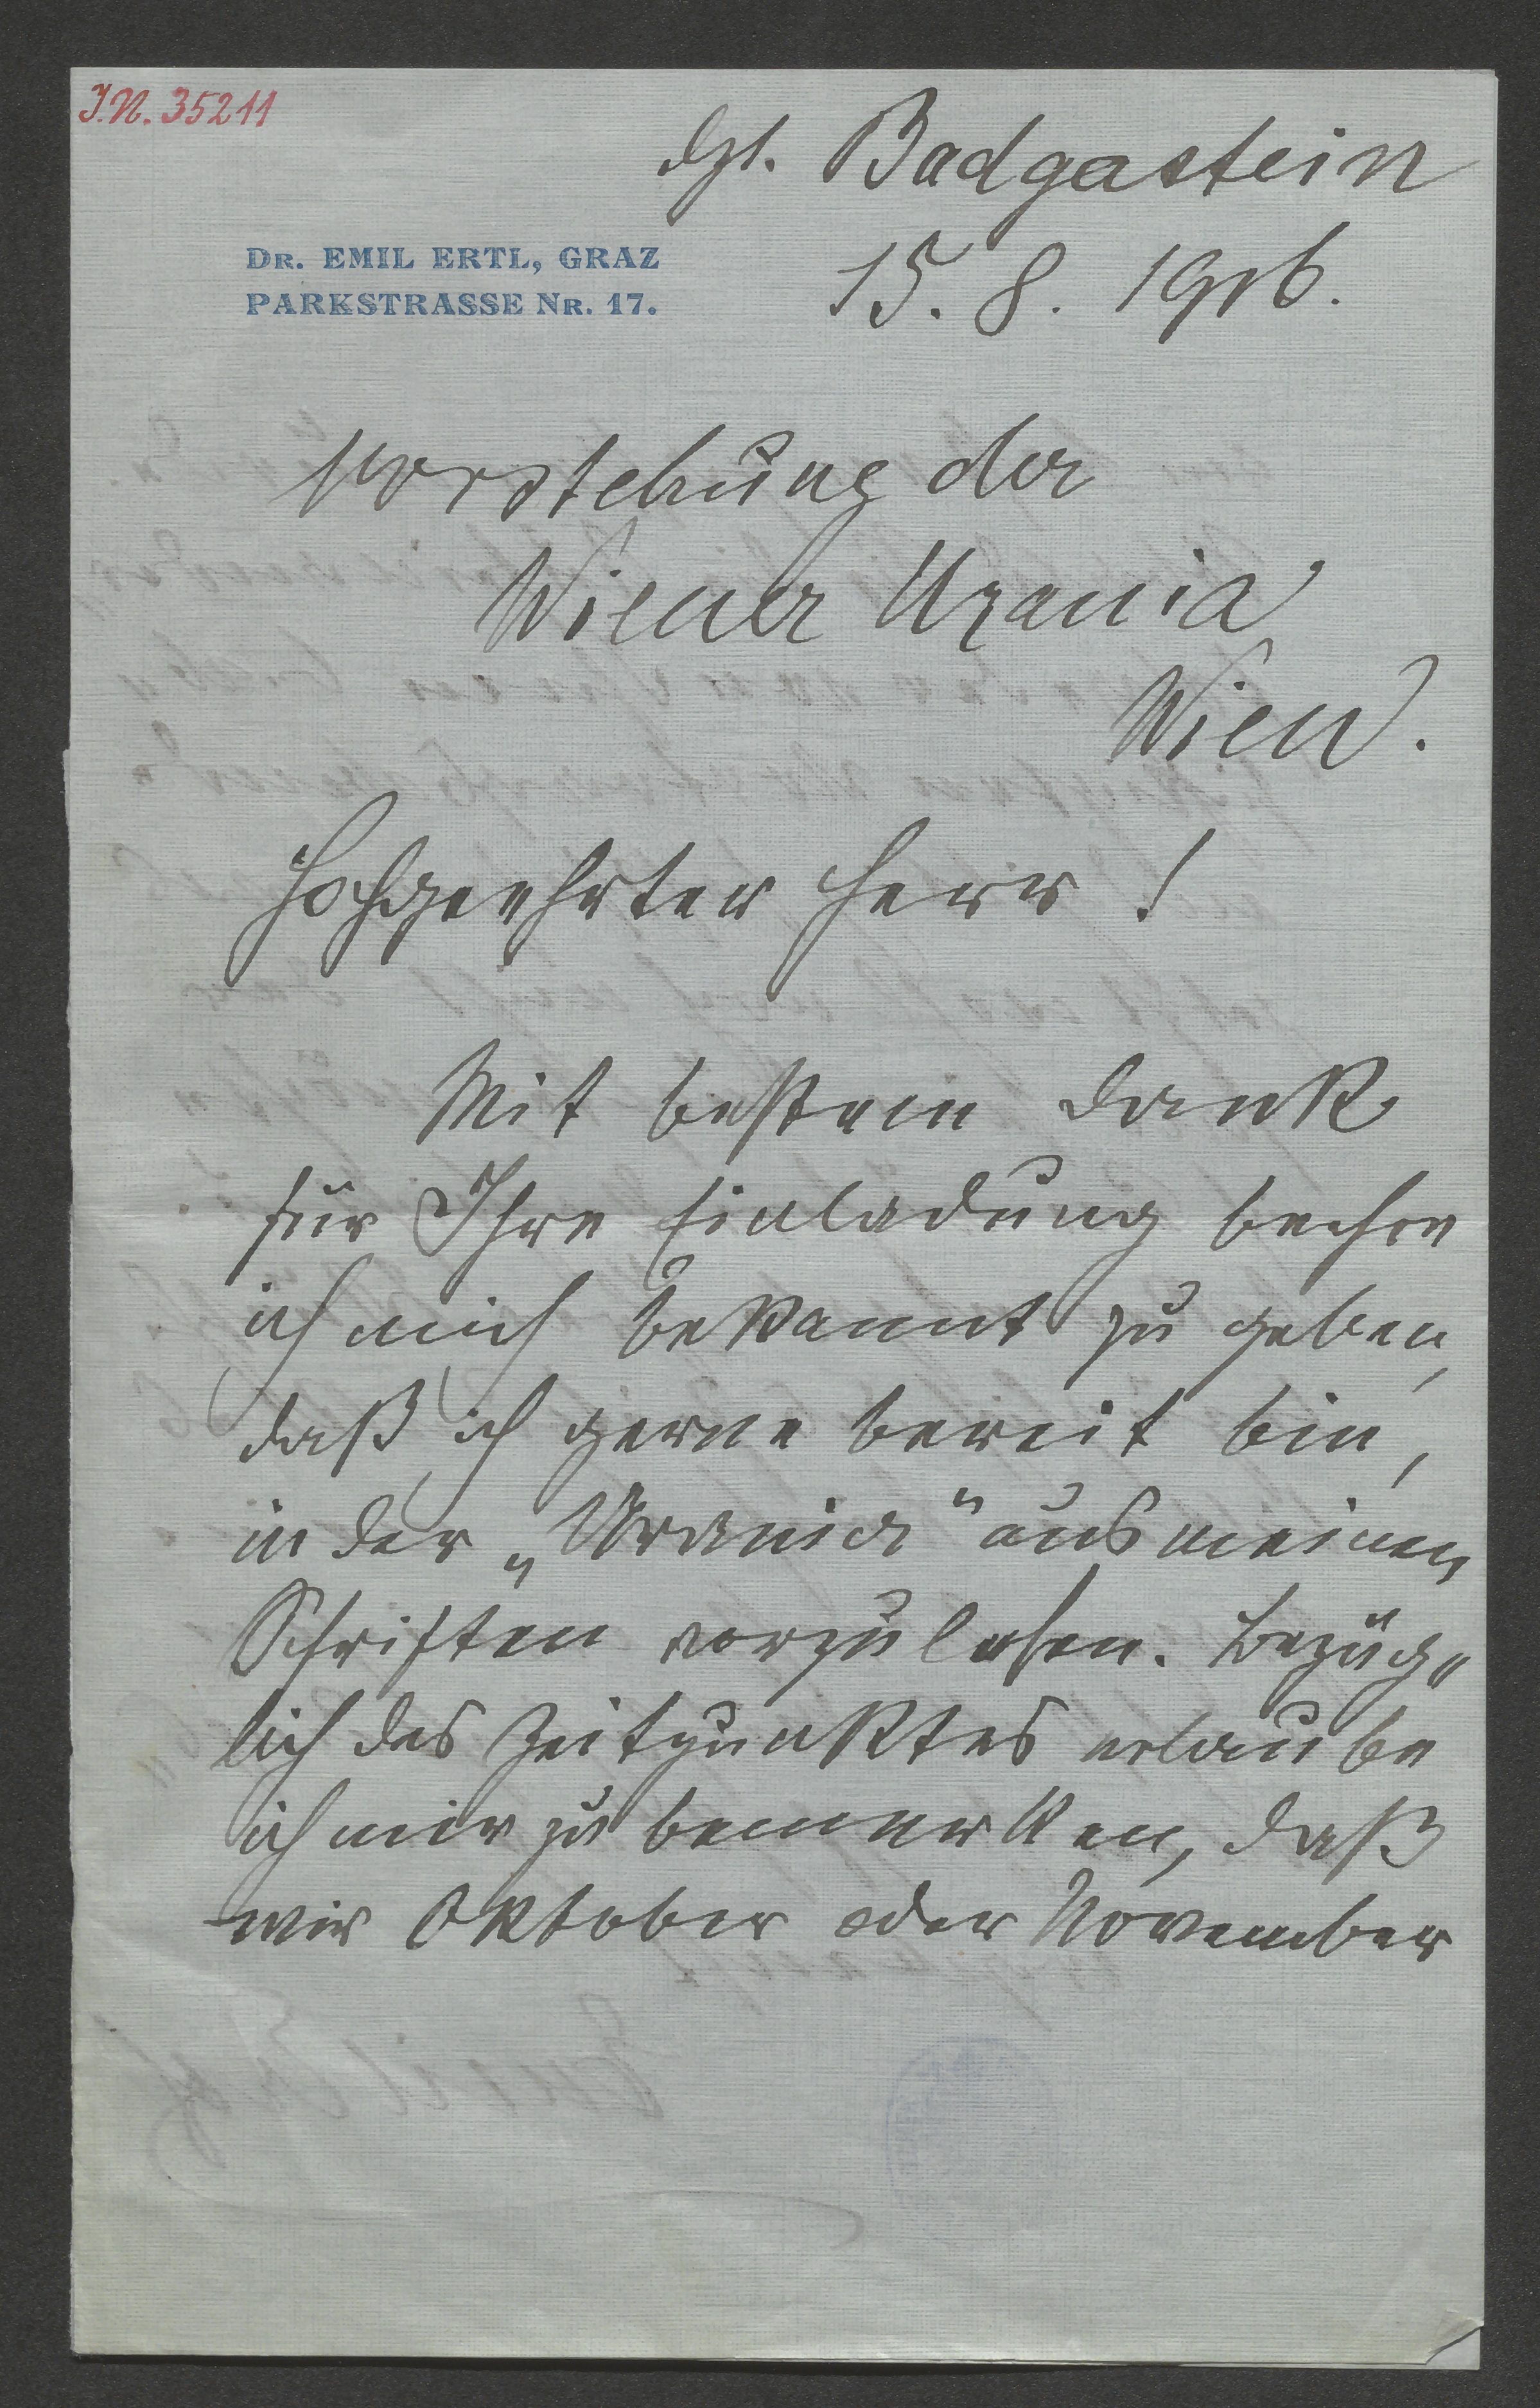 I.N. 35211
dzt. Badgastein
DR. EMIL ERTL, GRAZ
PARKSTRASSE NR. 17.
15. 8. 1916.
Vorstehung der
Wiener Urania
Wien.
Hochgeehrter Herr!
Mit bestem Dank
für Ihre Einladung beehre
ich mich bekannt zu geben,
daß ich gerne bereit bin,
in der „Urania“ aus meinen
Schriften vorzulesen. Bezüg„
lich des Zeitpunktes erlaube
ich mir zu bemerken, daß
mir Oktober oder November